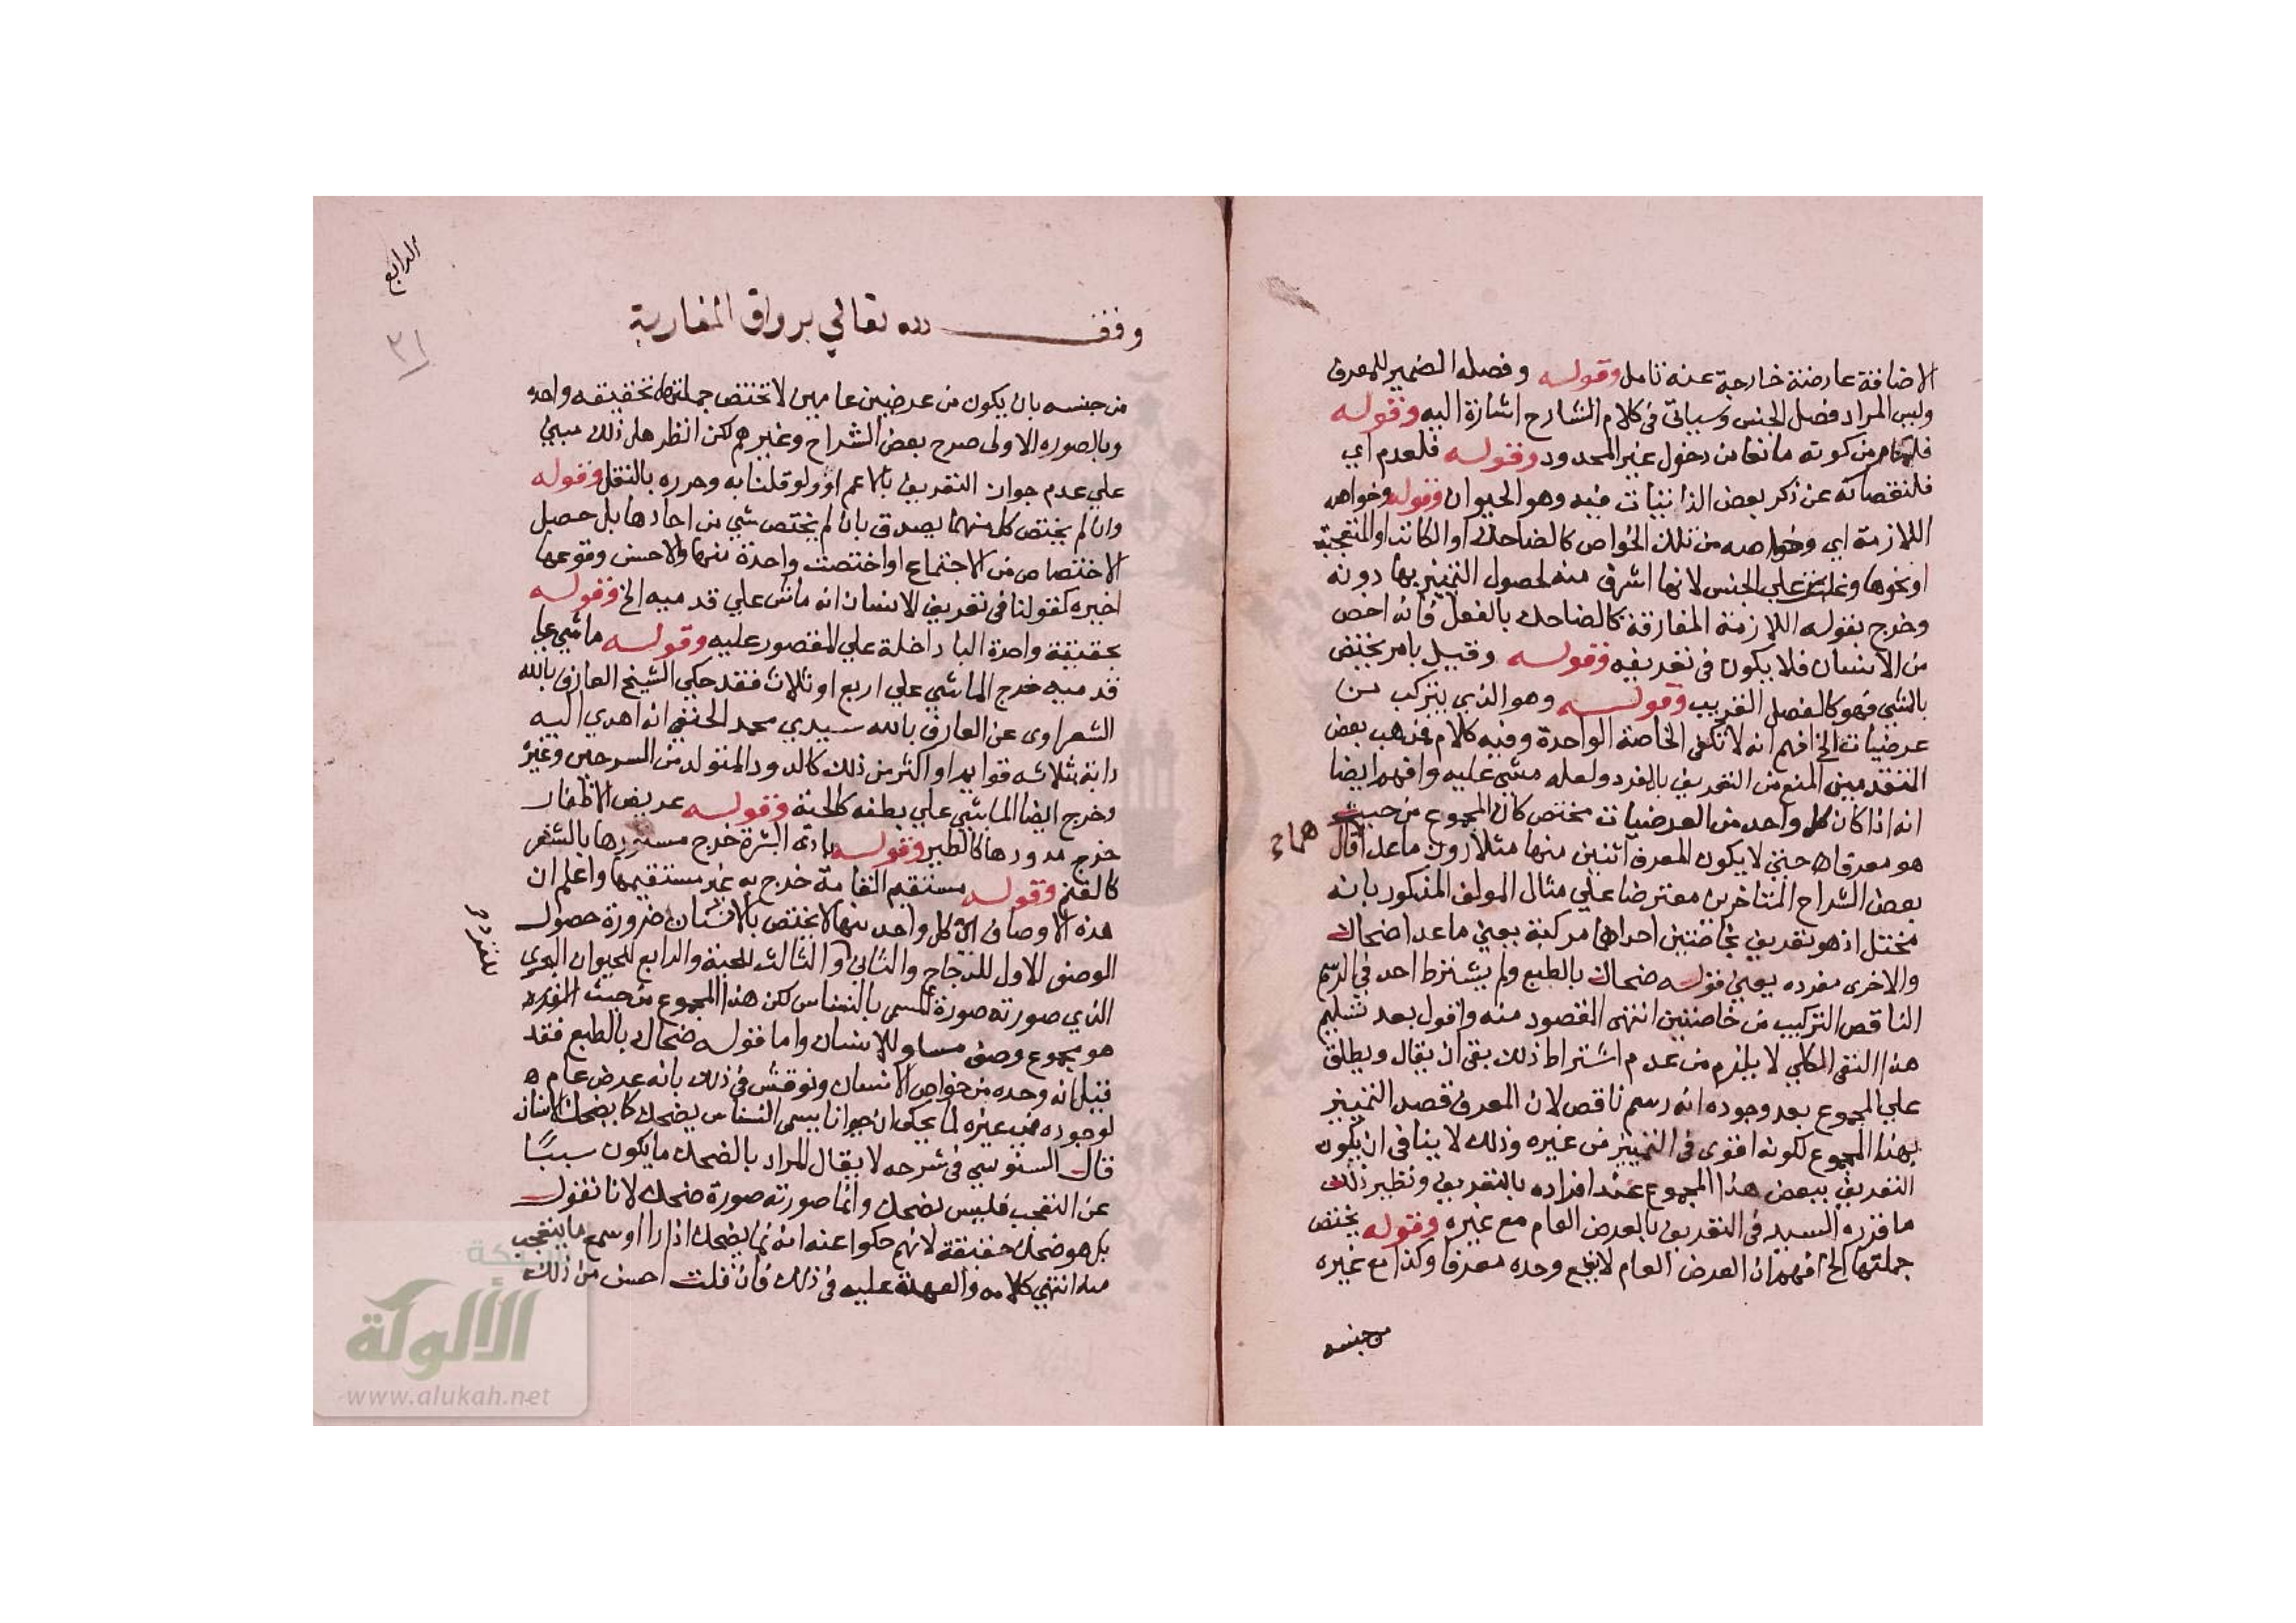 الاضافة عارضة خارجة عنه تامل وقوله وفصله الضمير للمعرف
وليس المراد فصل الجنس وسياتي في كلام الشارح اشارة اليه وقوله
من كونه مانعا من دخول غير المحدود وقوله فلعدم اي
فلنقصانه عن ذكر بعض الذاتيات فيه وهو الحيوان وقوله وخواصه
اللازمة اي وخواصه من تلك الخواص كالضاحك او الكاتب او المتعجب
او نحوها على الجنس لانها اشرف منه لحصول التمييز بها دونه
وخرج بقوله اللازمة المفارقة كالضاحك بالفعل فانه اخص
من الانسان فلا يكون في تعريفه وقوله وقيل بامر يختص
بالشي فهو كالفصل القريب وقوله وهو الذي يتركب من
عرضيات الخ افهم انه لا تكفي الخاصة الواحدة وفيه كلام فذهب بعض
المتقدمين المنع من التعريف بالمفرد ولعله مشي عليه وافهم ايضا
انه اذا كان كل واحد من العرضيات مختص كان المجموع من حيث
هو معرفا حتى لا يكون المعرف اثنين منها مثلا دون ما عداهما قال
بعض الشراح المتاخرين معترضا على مثال المولف المذكور بانه
مختل اذ هو تعريف بخاصتين احداهما مركبة يعني ما عدا ضحاك
والاخرى مفرده يعني قوله ضحاك بالطبع ولم يشترط احد في الرسم
الناقص التركيب من خاصتين انتهى المقصود منه واقول بعد تسليم
هذا النفي الكلي لا يلزم من عدم اشتراط ذلك بقى ان يقال ويطلق
على المجموع بعد وجوده انه رسم ناقص لان المعرف قصد التمييز
بهذا المجموع لكونه اقوى في التمييز من غيره وذلك لا ينافي ان يكون
التعريف ببعض هذا المجموع عند افراده بالتعريف ونظير ذلك
ما قرره السيد في التعريف بالعرض العام مع غيره وقوله يختص
جملتها الخ افهم ان العرض العام لا يقع وحده معرفا وكذا مع غيره
من جنسه
الرابع
٣١
وقف لله تعالي برواق المغاربة
من جنسه بان يكون من عرضين عامين لا تختص جملتها بحقيقه واحده
وبالصوره الاولى صرح بعض الشراح وغيرهم لكن انظر هل ذلك مبني
علي عدم جواز التعريف بالاعم او ولو قلنا به وحرره بالنقل وقوله
وان لم يختص كل منها يصدق بان لم يختص شي من احادها بل حصل
الاختصاص من الاجتماع او اختصت واحدة منها والاحسن وقوعها
اخيره كقولنا في تعريف الانسان انه ماش علي قدميه الخ وقوله
بحقيقة واحدة الباء داخلة علي المقصور عليه وقوله ماشي علي
قدميه خرج الماشي علي اربع او ثلاث فقد حكي الشيخ العارف بالله
الشعراوى عن العارف بالله سيدي محمد الحنفي انه اهدي اليه
دابة بثلاثه قوايم او اكثر من ذلك كالدود المتولد من السرجين وغيره
وخرج ايضا الماشي علي بطنه كالحية وقوله عريض الاظفار
خرج مدورها كالطير وقوله بادي البشرة خرج مستورها بالشعر
كالغنم وقوله مستقيم القامة خرج به غير مستقيمها واعلم ان
هذه الاوصاف كل واحد منها لا يختص بالانسان ضرورة حصول
الوصف الاول للدجاج والثاني والثالث للحية والرابع للحيوان البحري
الذي صورته صورة المسمى بالنسناس لكن هذا المجموع من حيث
هو مجموع وصف مساو للانسان واما قوله ضحاك بالطبع فقد
قيل انه وحده من خواص الانسان ونوقش في ذلك بانه عرض عام
لوجوده في غيره لما يحكى ان حيوانا يسمى النسناس يضحك كما يضحك الانسان
قال السنوسي في شرحه لا يقال المراد بالضحك ما يكون سببًا
عن التعجب فليس بضحك وانما صورته صورة ضحك لانا نقول
بل هو ضحك حقيقة لانهم حكوا عنه انه انما يضحك اذا راا او سمع ما يتعجب
منه انتهي كلامه والعهدة عليه في ذلك فان قلت احسن من ذلك
الألوكة
www.alukah.net